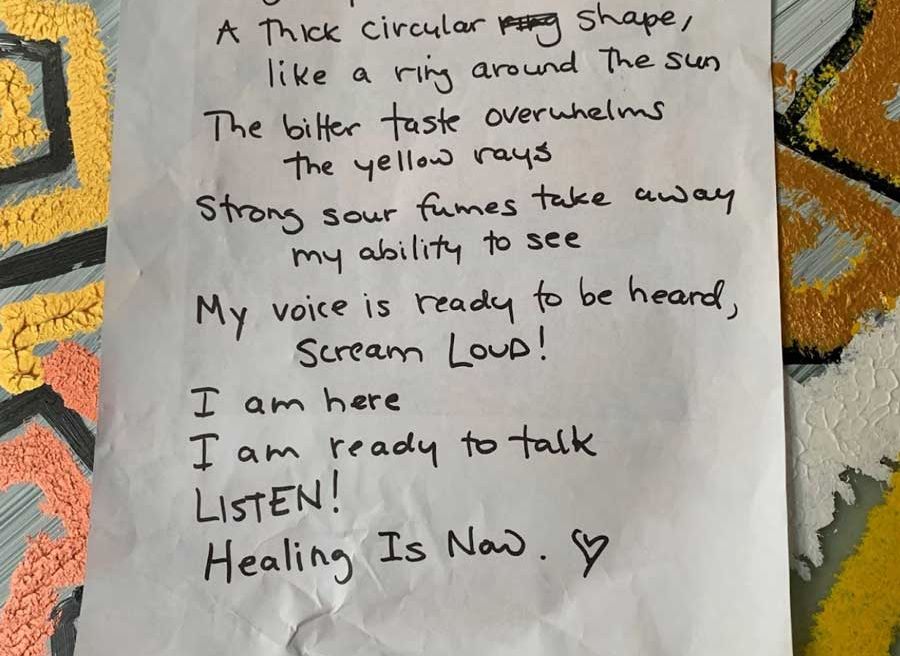 A Thick circular shape,
like a ring around The sun
The bitter taste overwhelms
the yellow rays
Strong sour fumes take away
my ability to see
My voice is ready to be heard,
Scream LOUD!
I am here
I am ready to talk
LISTEN!
Healing Is Now.